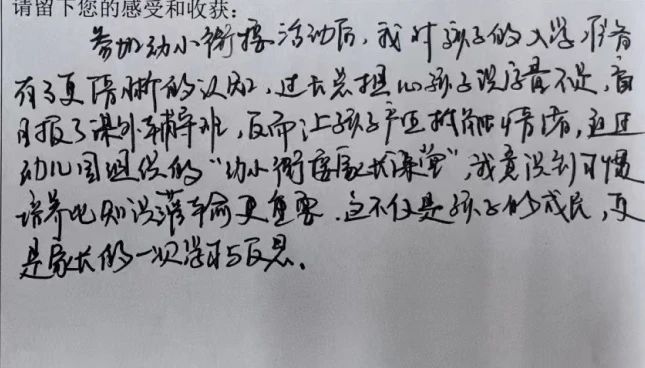 请留下您的感受和收获：
参加幼小衔接活动后，我对孩子的入学准备
有了更清晰的认知，过去总担心孩子识字量不足，盲
目报了课外辅导班，反而让孩子产生抵触情绪，通过
幼儿园组织的“幼小衔接家长课堂”，我意识到习惯
培养比知识灌输更重要．这不仅是孩子的成长，更
是家长的一次学习与反思．